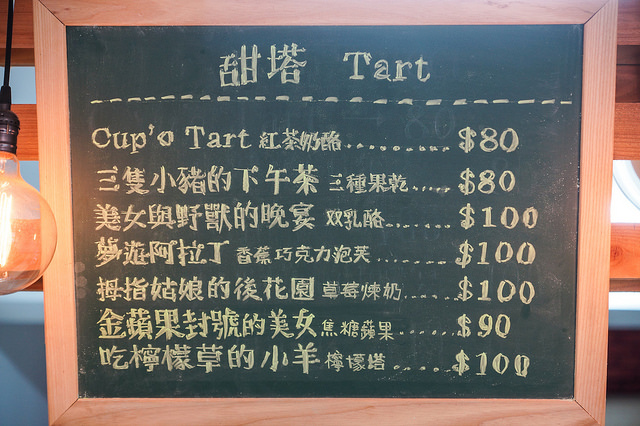 甜塔 Tart
Cup'o Tart 紅茶奶酪......... $80
三隻小豬的下午茶 三種果乾..... $80
美女與野獸的晚宴 双乳酪....... $100
夢遊阿拉丁 香蕉巧克力泡芙....... $100
拇指姑娘的後花園 草莓煉奶..... $100
金蘋果封號的美女 焦糖蘋果...... $90
吃檸檬草的小羊 檸檬塔...... $100